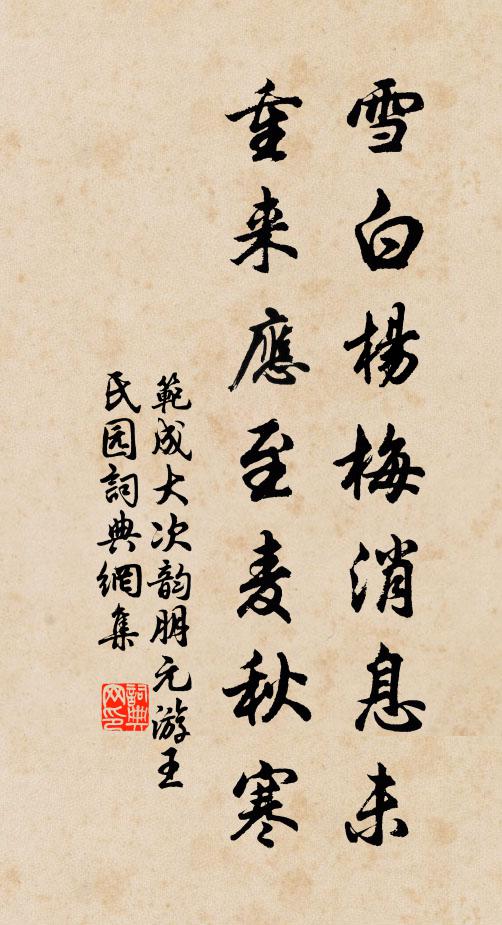 雪白楊梅消息未
重来應至麦秋寒
範成大次韵朋元游王
氏园詞典網集
詞典网印